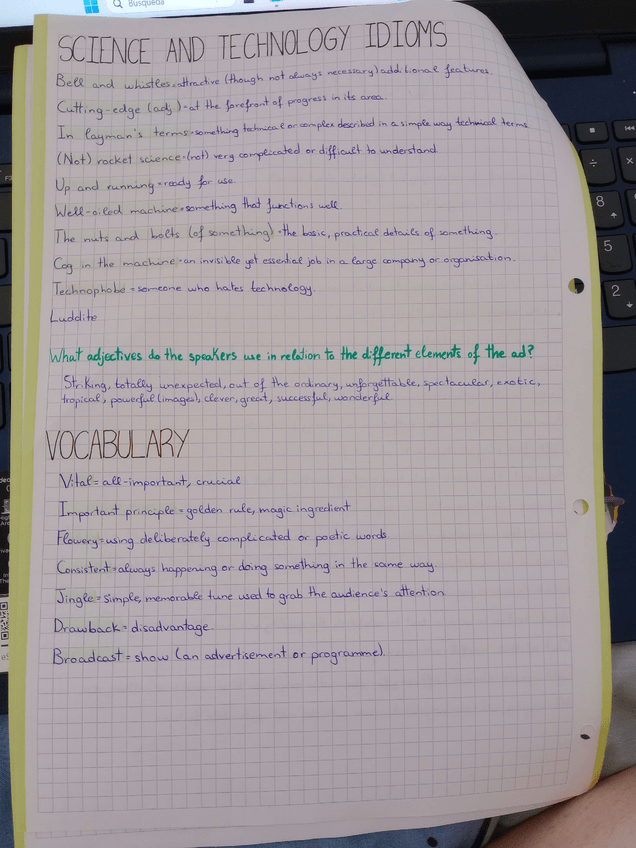 Busqueda
SCIENCE AND TECHNOLOGY IDIOMS
Bell and whistles=attractive (though not always necessary) additional features.
Cutting-edge (adj.)=at the forefront of progress in its area.
In layman's terms=something technical or complex described in a simple way technical terms.
(Not) rocket science=(not) very complicated or difficult to understand.
Up and running=ready for use.
Well-oiled machine=something that functions well.
The nuts and bolts (of something)=the basic, practical details of something.
Cog in the machine=an invisible yet essential job in a large company or organisation.
Technophobe=someone who hates technology.
Luddite
What adjectives do the speakers use in relation to the different elements of the ad?
Striking, totally unexpected, out of the ordinary, unforgettable, spectacular, exotic,
tropical, powerful (images), clever, great, successful, wonderful.
VOCABULARY
Vital= all-important, crucial
Important principle=golden rule, magic ingredient
Flowery=using deliberately complicated or poetic words.
Consistent=always happening or doing something in the same way.
Jingle=simple, memorable tune used to grab the audience's attention.
Drawback=disadvantage.
Broadcast=show (an advertisement or programme).
8
5
2